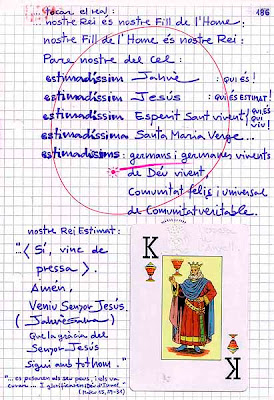 tocan el rei :
186
nostre Rei és nostre Fill de l'Home.
nostre Fill de l'Home és nostre Rei :
Pare nostre del cel :
estimadíssim Jahvè : QUI ÉS !
estimadíssim Jesús : QUI ÉS ESTIMAT !
estimadíssim Esperit Sant vivent ! QUI ÉS QUI VIU !
estimadíssima Santa Maria Verge...
estimadíssims : germans i germanes vivents
de Déu vivent,
Comunitat feliç i universal
de Comunitat veritable.
nostre Rei Estimat :
"< Sí, vinc de
pressa >.
Amén,
Veniu Senyor Jesús.
Que la gràcia del
Senyor Jesús
sigui amb tothom."
K
K